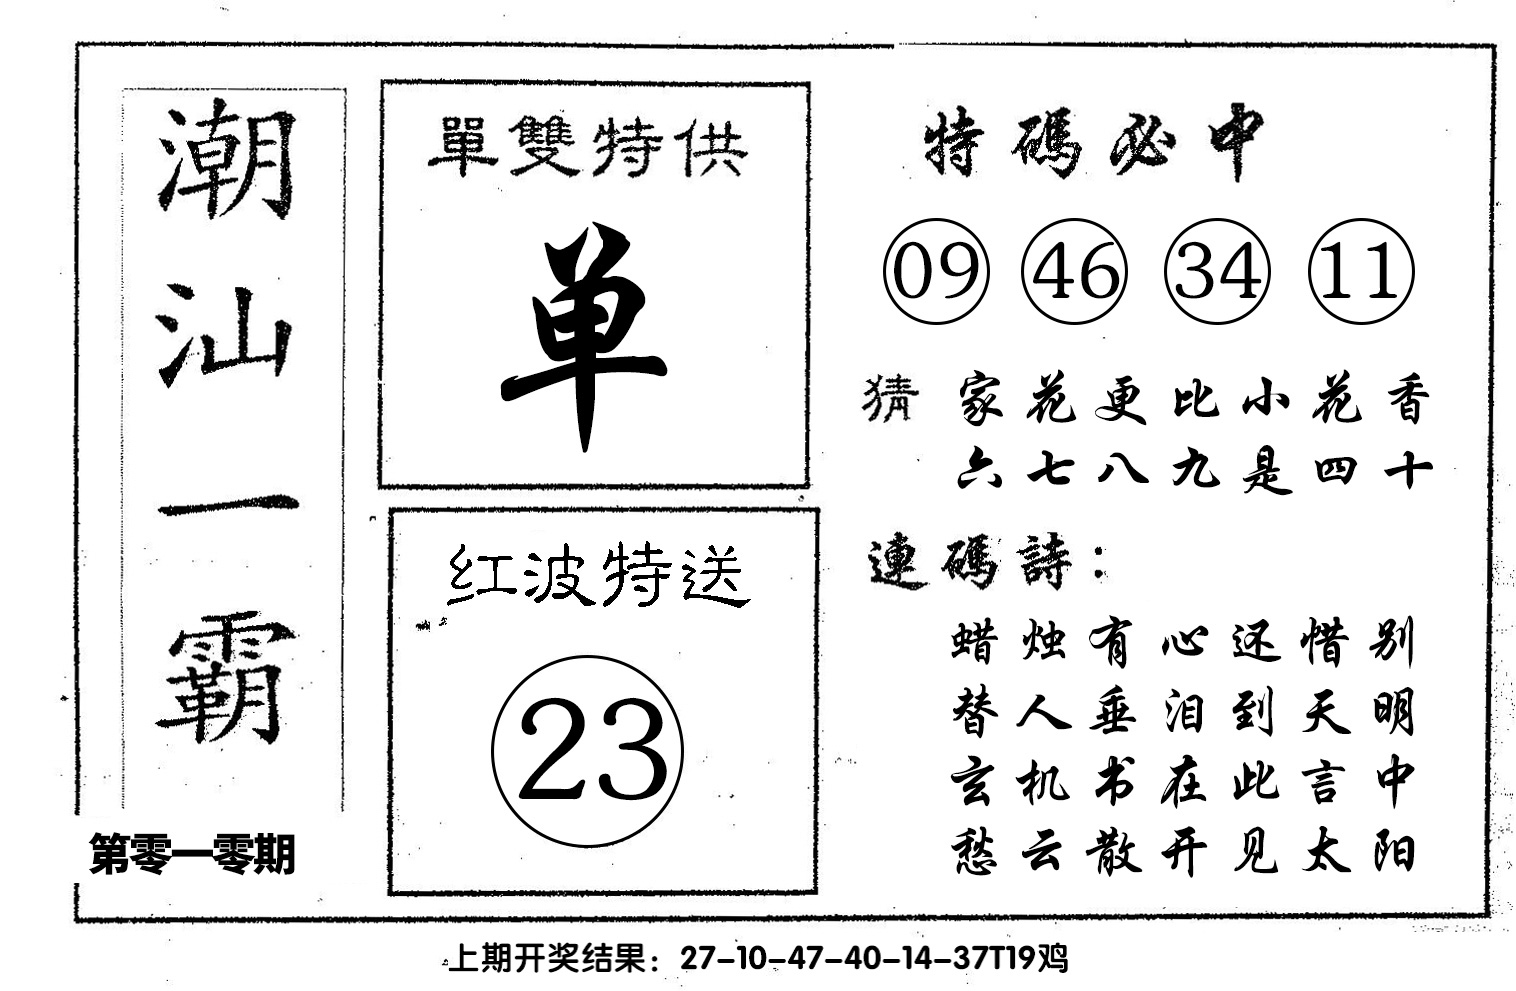 潮汕一霸
第零一零期
單雙特供
单
红波特送
23
特碼必中
09 46 34 11
猜 家花更比小花香
六七八九是四十
連碼詩：
蜡烛有心还惜别
替人垂泪到天明
玄机书在此言中
愁云散开见太阳
上期开奖结果：27-10-47-40-14-37T19鸡